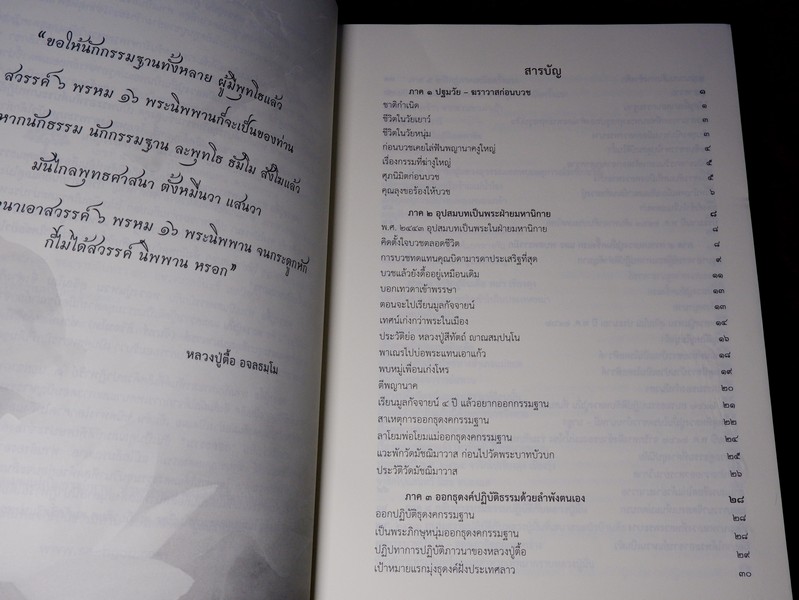 “ขอให้นักกรรมฐานทั้งหลาย ผู้มีพุทโธแล้ว
สวรรค์ ๖ พรหม ๑๖ พระนิพพานก็จะเป็นของท่าน
หากนักธรรม นักกรรมฐาน ละพุทโธ ธัมโม สังโฆแล้ว
มันไกลพุทธศาสนา ตั้งหมื่นวา แสนวา
เอาสวรรค์ ๖ พรหม ๑๖ พระนิพพาน จนกระดูกหัก
ก็ไม่ได้สวรรค์ นิพพาน หรอก”
หลวงปู่ตื้อ อจลธมฺโม
สารบัญ
ภาค ๑ ปฐมวัย – ฆราวาสก่อนบวช ๑
ชาติกำเนิด ๑
ชีวิตในวัยเยาว์ ๓
ชีวิตในวัยหนุ่ม ๓
ก่อนบวชเคยไล่ฟันพญานาคงูใหญ่ ๔
เรื่องกรรมที่ฆ่างูใหญ่ ๕
ศุภนิมิตก่อนบวช ๕
คุณลุงขอร้องให้บวช ๖
ภาค ๒ อุปสมบทเป็นพระฝ่ายมหานิกาย ๘
พ.ศ. ๒๔๔๓ อุปสมบทเป็นพระในฝ่ายมหานิกาย ๘
คิดตั้งใจบวชตลอดชีวิต ๘
การบวชทดแทนคุณบิดามารดาประเสริฐที่สุด ๙
บวชแล้วยังดื้ออยู่เหมือนเดิม ๑๑
บอกเทวดาเข้าพรรษา ๑๓
ตอนจะไปเรียนมูลกัจจายน์ ๑๓
เทศน์เก่งกว่าพระในเมือง ๑๔
ประวัติย่อ หลวงปู่สีทัตถ์ ญาณสมปนฺโน ๑๖
พาเณรไปบ่อพระแทนเอาแก้ว ๑๘
พบหมู่เพื่อนเก่งโหร ๑๙
ตีพญานาค ๒๐
เรียนมูลกัจจายน์ ๔ ปี แล้วอยากออกกรรมฐาน ๒๑
สาเหตุการออกธุดงคกรรมฐาน ๒๒
ลาโยมพ่อโยมแม่ออกธุดงคกรรมฐาน ๒๔
แวะพักวัดมัชฌิมาวาส ก่อนไปวัดพระบาทบัวบก ๒๕
ประวัติวัดมัชฌิมาวาส ๒๖
ภาค ๓ ออกธุดงค์ปฏิบัติธรรมด้วยลำพังตนเอง ๒๘
ออกปฏิบัติธุดงคกรรมฐาน ๒๘
เป็นพระภิกษุหนุ่มออกธุดงคกรรมฐาน ๒๘
ปฏิปทาการปฏิบัติภาวนาของหลวงปู่ตื้อ ๒๙
เป้าหมายแรกมุ่งธุดงค์ฝั่งประเทศลาว ๓๐